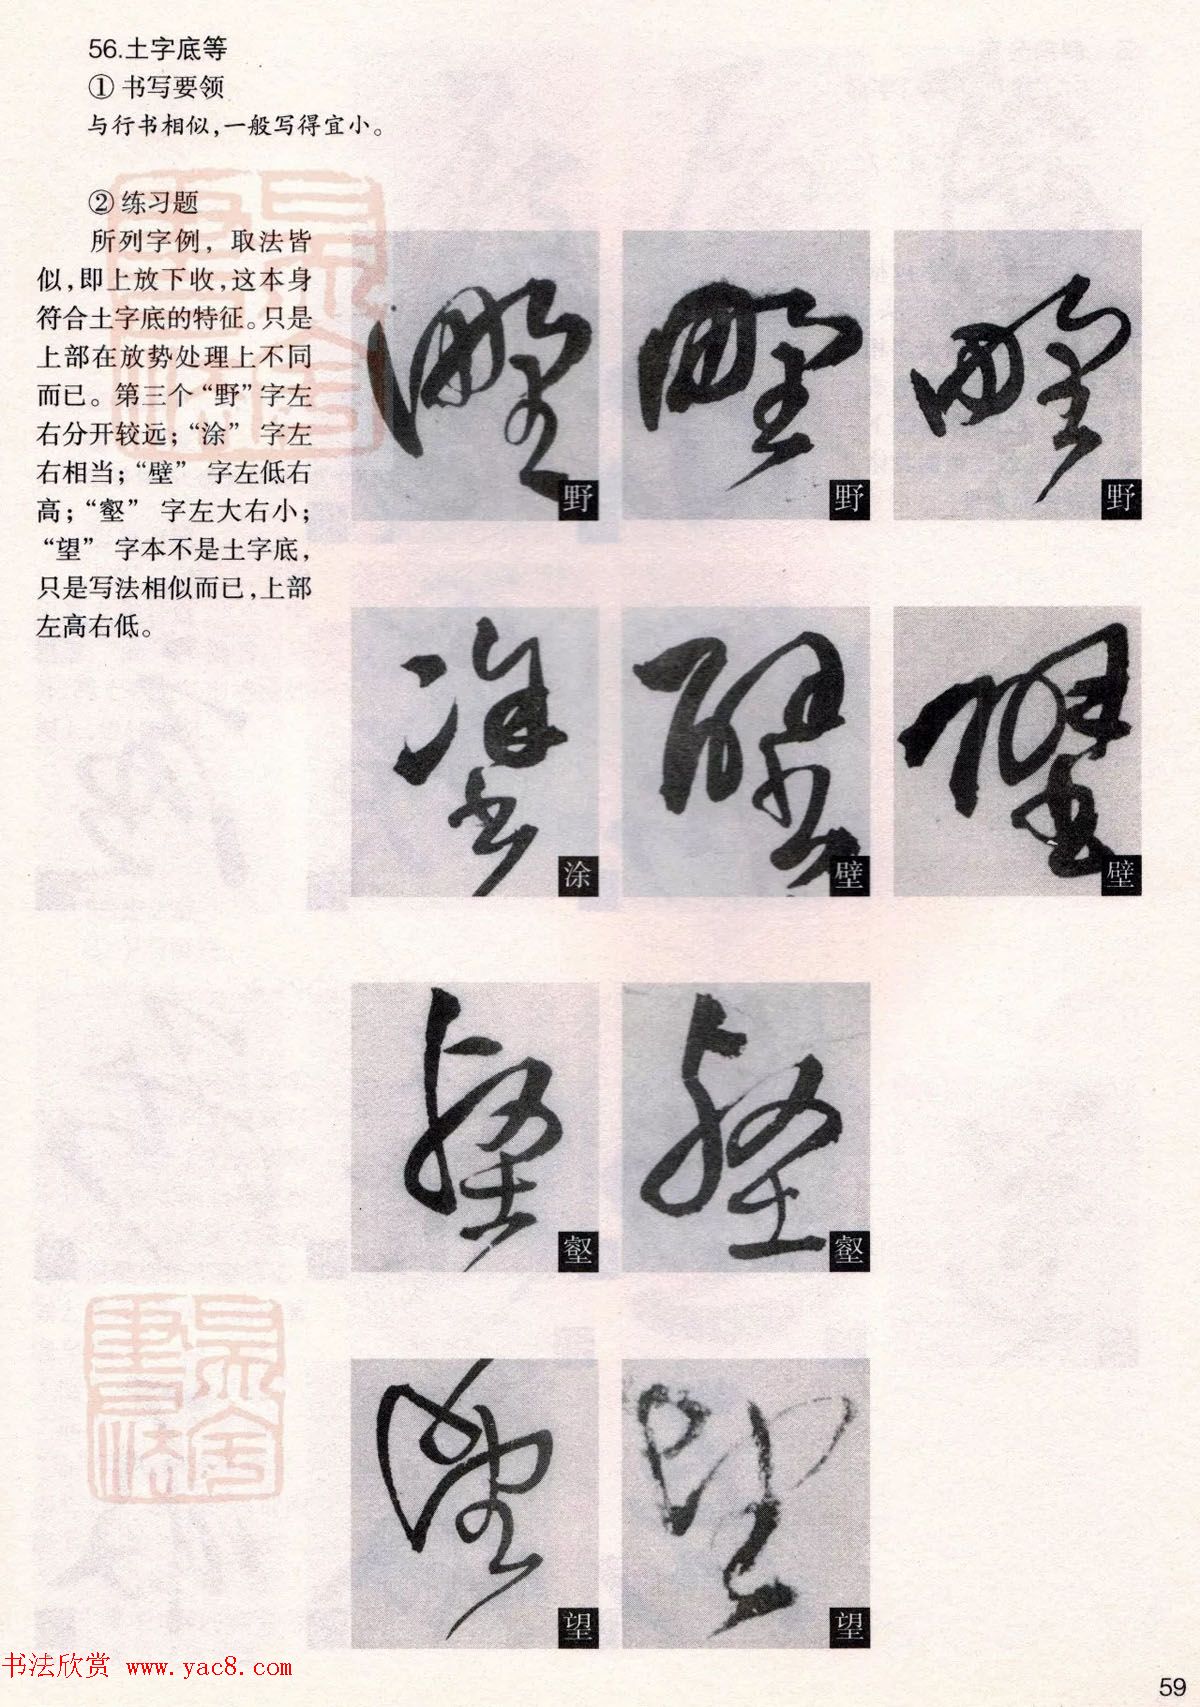 56.土字底等
① 书写要领
与行书相似,一般写得宜小。
② 练习题
所列字例，取法皆
似,即上放下收,这本身
符合土字底的特征。只是
上部在放势处理上不同
而已。第三个“野”字左
右分开较远；“涂” 字左
右相当；“壁” 字左低右
高；“壑” 字左大右小；
“望” 字本不是土字底，
只是写法相似而已,上部
左高右低。
野
野
野
涂
壁
壁
壑
壑
望
望
书法欣赏 www.yac8.com
59